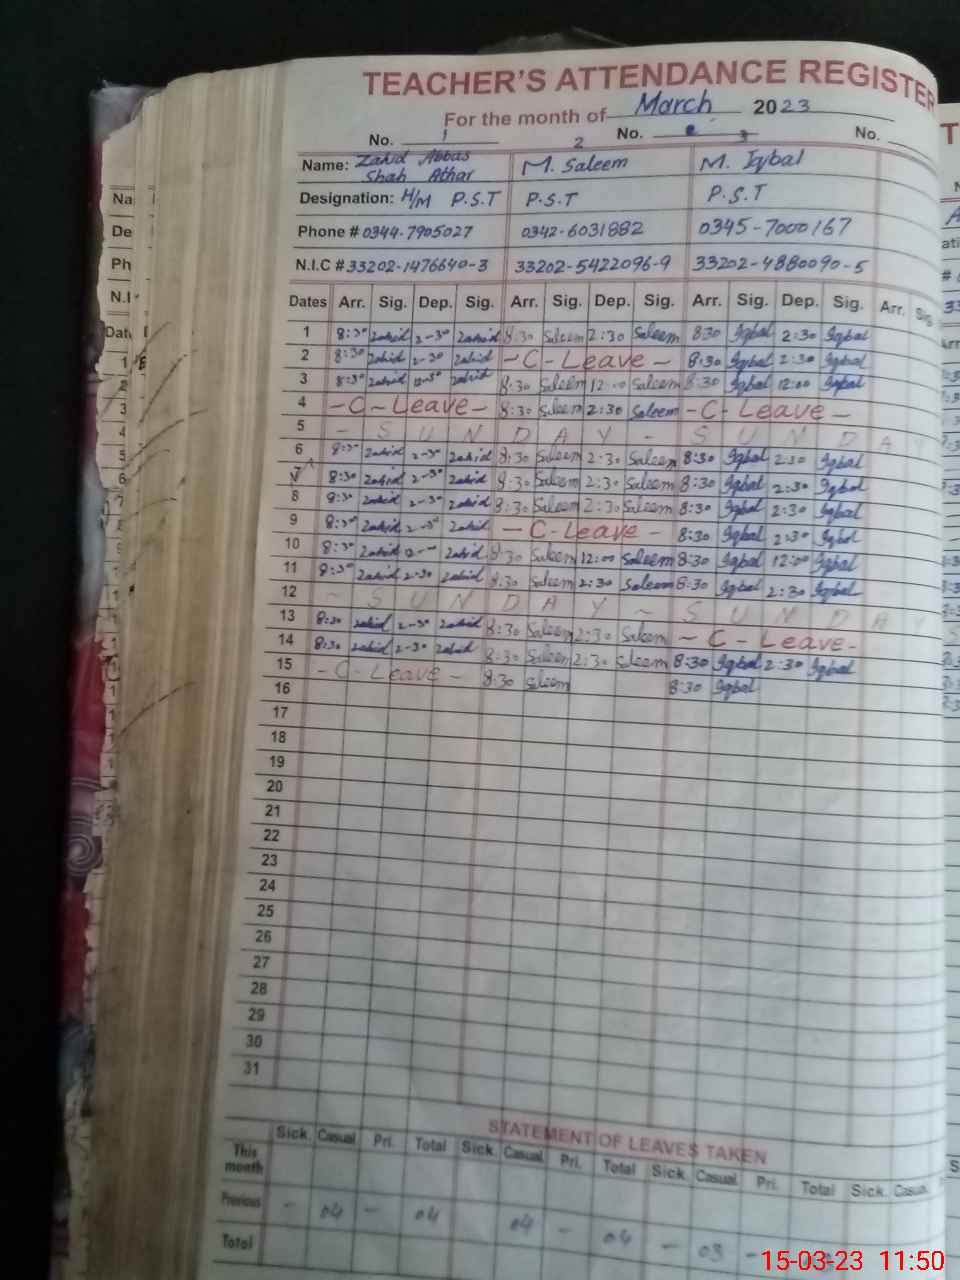 TEACHER'S ATTENDANCE REGISTER
For the month of March 2023
No. 1 2 No. 3 No.
Name: Zahid Abbas Shah Athar M. Saleem M. Iqbal
Designation: H/M P.S.T P.S.T P.S.T
Phone # 0344-7905027 0342-6031882 0345-7000167
N.I.C # 33202-1476640-3 33202-5422096-9 33202-4880090-5
Dates Arr. Sig. Dep. Sig. Arr. Sig. Dep. Sig. Arr. Sig. Dep. Sig. Arr. Sig.
1 8:30 Zahid 2-30 Zahid 8:30 Saleem 2:30 Saleem 8:30 Iqbal 2:30 Iqbal
2 8:30 Zahid 2-30 Zahid -C-Leave- 8:30 Iqbal 2:30 Iqbal
3 8:30 Zahid Zahid 8:30 Saleem 12:00 Saleem 8:30 Iqbal 12:00 Iqbal
4 -C-Leave- 8:30 Saleem 2:30 Saleem -C-Leave-
5 - S U N D A Y - S U N D A Y
6 8:30 Zahid 2-30 Zahid 8:30 Saleem 2:30 Saleem 8:30 Iqbal 2:30 Iqbal
7 8:30 Zahid 2-30 Zahid 8:30 Saleem 2:30 Saleem 8:30 Iqbal 2:30 Iqbal
8 8:30 Zahid 2-30 Zahid 8:30 Saleem 2:30 Saleem 8:30 Iqbal 2:30 Iqbal
9 8:30 Zahid 2-30 Zahid -C-Leave- 8:30 Iqbal 2:30 Iqbal
10 8:30 Zahid Zahid 8:30 Saleem 12:00 Saleem 8:30 Iqbal 12:00 Iqbal
11 8:30 Zahid 2-30 Zahid 8:30 Saleem 2:30 Saleem 8:30 Iqbal 2:30 Iqbal
12 - S U N D A Y - S U N D A Y
13 8:30 Zahid 2-30 Zahid 8:30 Saleem 2:30 Saleem -C-Leave-
14 8:30 Zahid 2-30 Zahid 8:30 Saleem 2:30 Saleem 8:30 Iqbal 2:30 Iqbal
15 -C-Leave- 8:30 Saleem 8:30 Iqbal
16
17
18
19
20
21
22
23
24
25
26
27
28
29
30
31
STATEMENT OF LEAVES TAKEN
Sick. Casual Pri. Total Sick. Casual Pri. Total Sick. Casual Pri. Total Sick. Casual.
This month
Previous - 04 - 04 04 - 04 - 03 -
Total
15-03-23 11:50